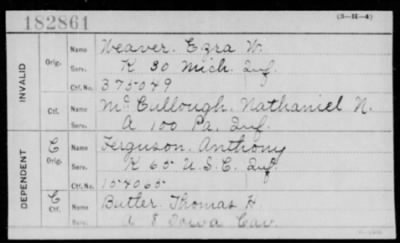 182861
(3-H-4)
INVALID
Orig. Name Weaver, Ezra W.
Serv. K 30 Mich. Inf.
Ctf. No. 375049
Ctf. Name McCullough, Nathaniel N.
Serv. A 100 Pa. Inf.
DEPENDENT
C Orig. Name Ferguson, Anthony
Serv. K 65 U.S.C. Inf.
Ctf. No. 154065
C Ctf. Name Butler, Thomas H
Serv. A 8 Iowa Cav.